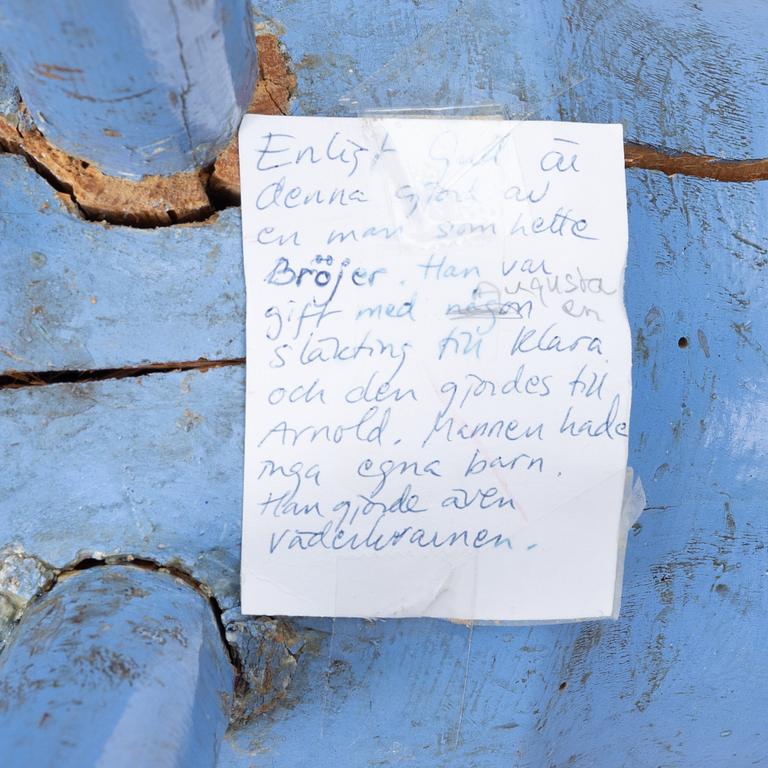 Enligt Gud är
denna gjord av
en man som hette
Bröjer. Han var
Augusta
gift med någon en
släkting till Klara
och den gjordes till
Arnold. Mannen hade
inga egna barn.
Han gjorde även
väderkvarnen.